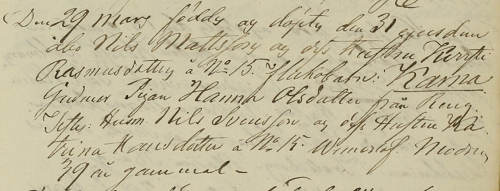 Den 29 Mars föddes og döptes den 31 ejusdem
åbo Nils Mattsson og dess hustru Kersti
Rasmusdotter å No 15. flickobarn: Karna
Gudmor Pigan Hanna Olsdotter från Reng.
Test: Husm Nils Svensson og dess Hustru Ka
trina Hansdotter å No 15. Modren
29 år gammal –